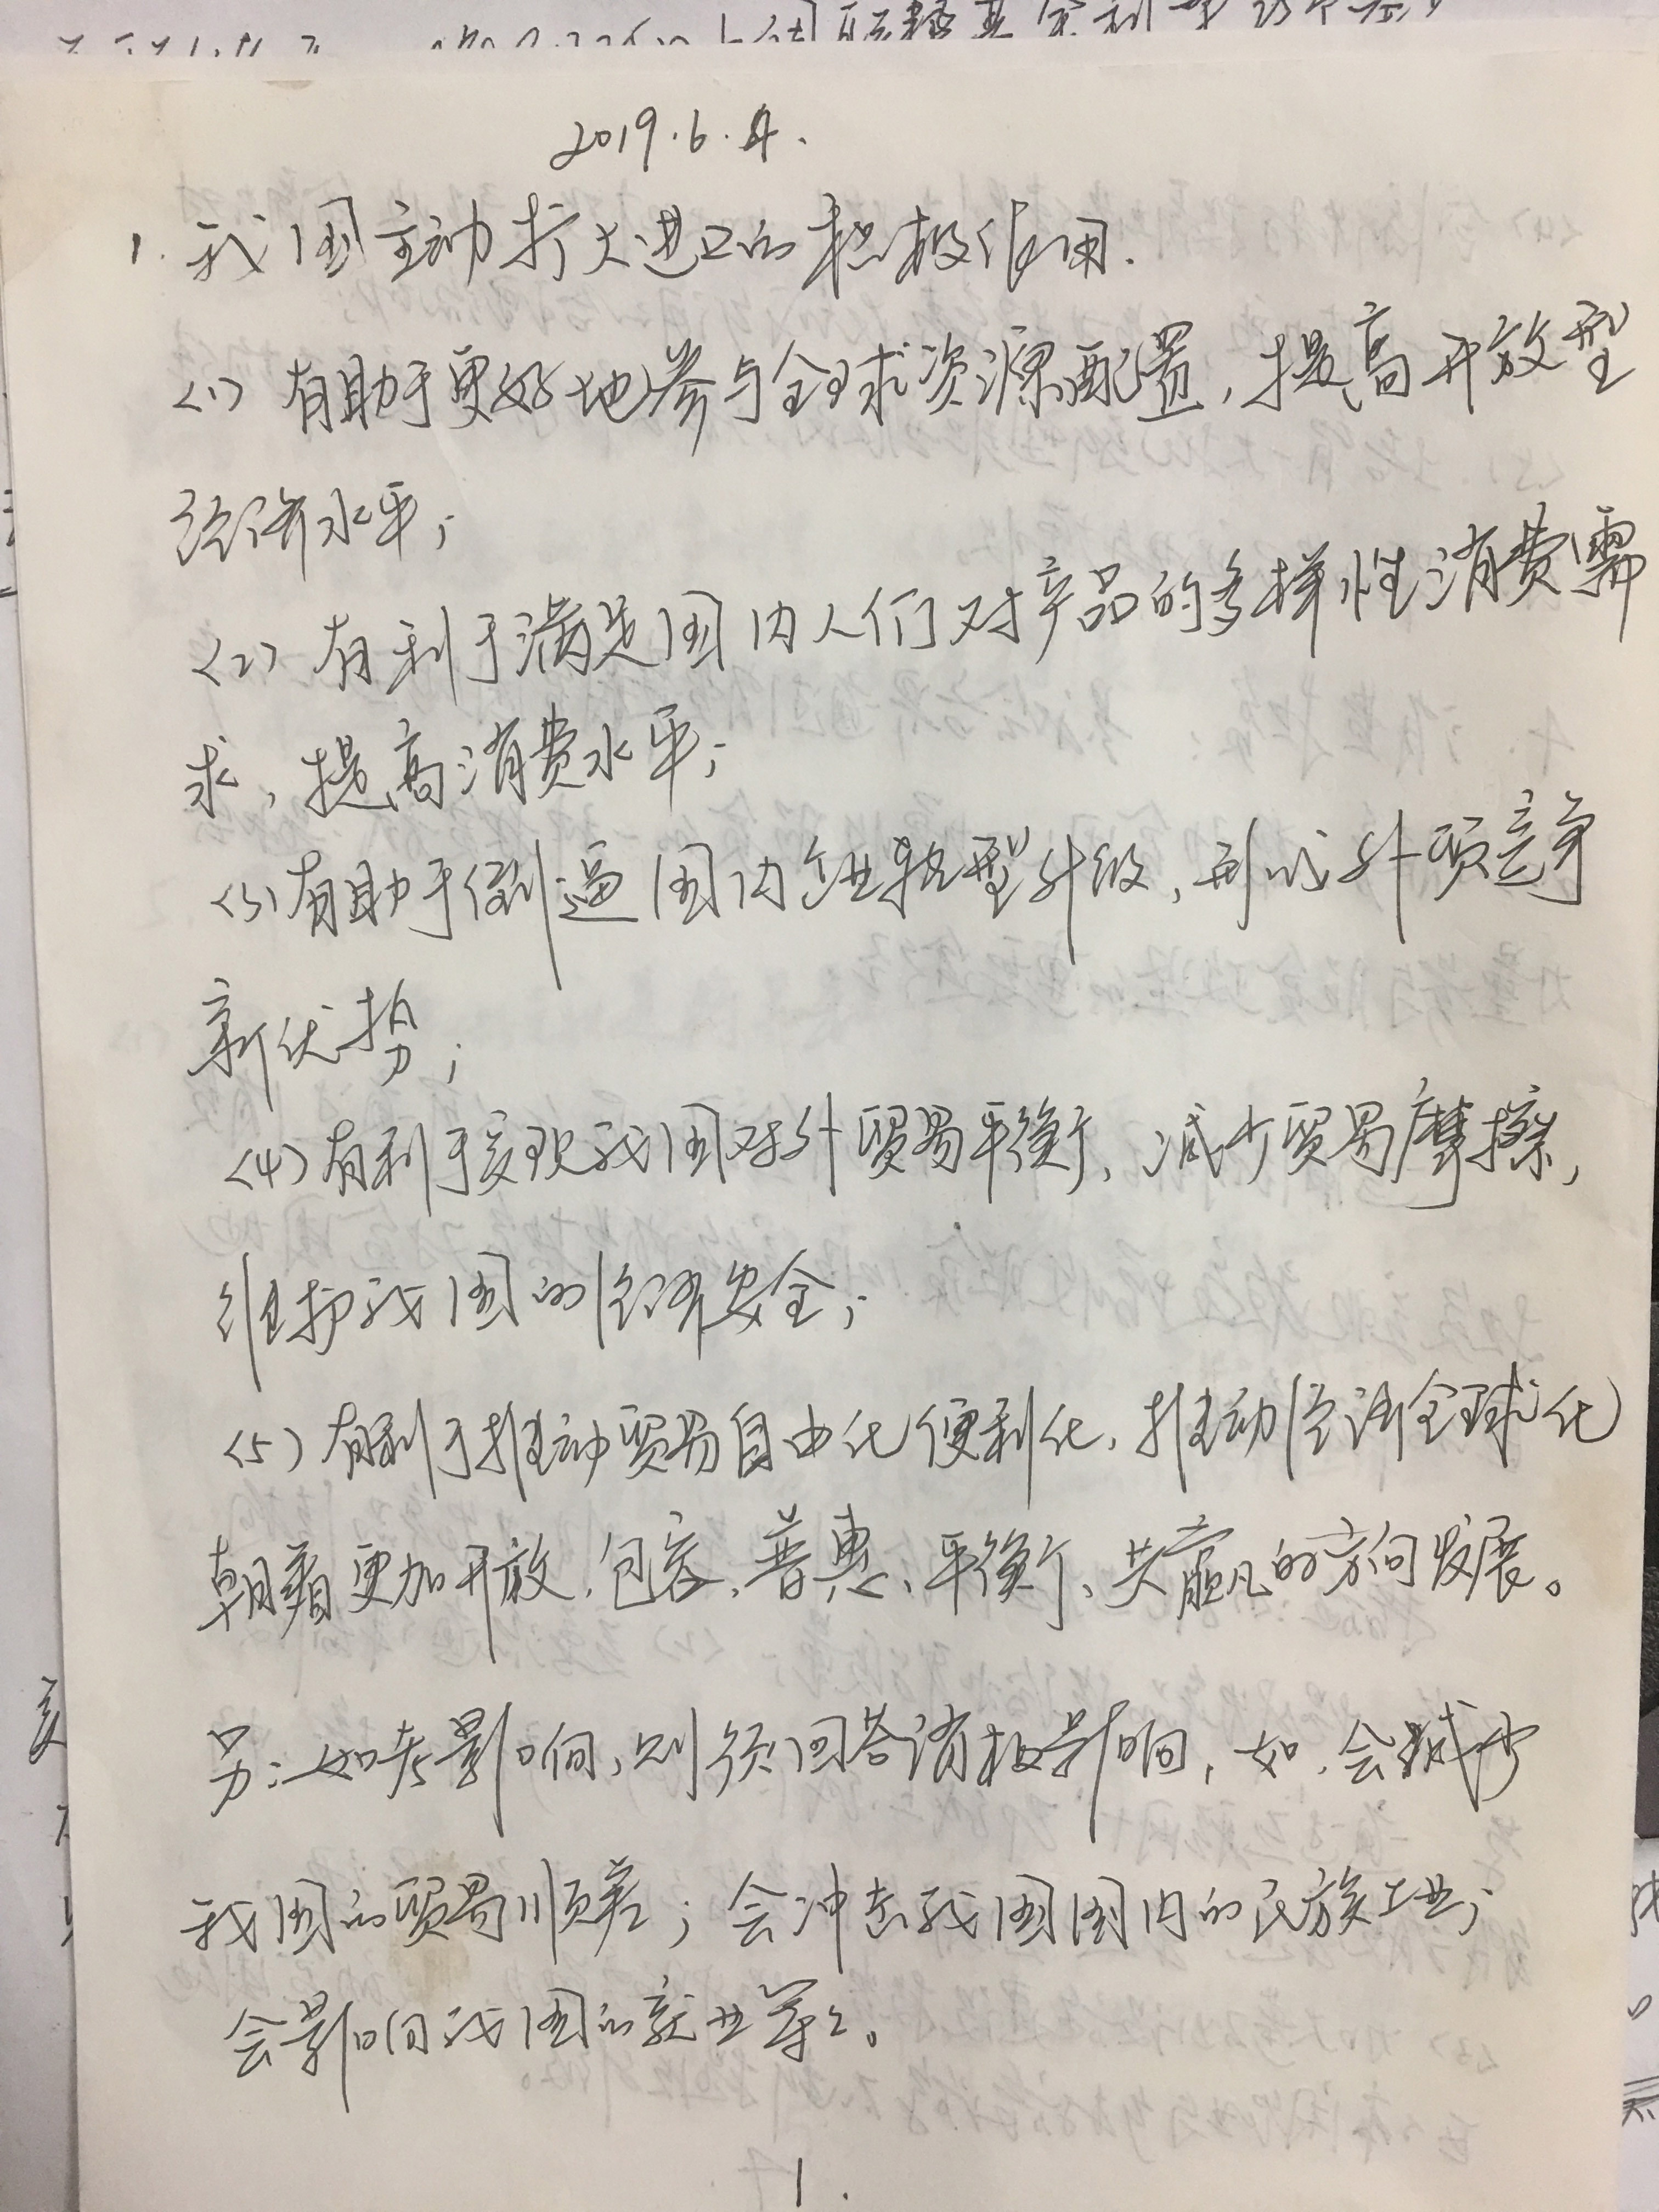 2019.6.4.
1. 我国主动扩大进口的积极作用.
<1> 有助于更好地参与全球资源配置,提高开放型
经济水平;
<2> 有利于满足国内人们对产品的多样性消费需
求,提高消费水平;
<3>有助于倒逼国内企业转型升级,形成外贸竞争
新优势;
<4>有利于实现我国对外贸易平衡,减少贸易摩擦,
维护我国的经济安全;
<5>有利于推动贸易自由化便利化,推动经济全球化
朝着更加开放、包容、普惠、平衡、共赢的方向发展。
另:如考影响,则须回答消极影响,如,会减少
我国的贸易顺差;会冲击我国国内的民族工业;
会影响我国的就业等等。
1.